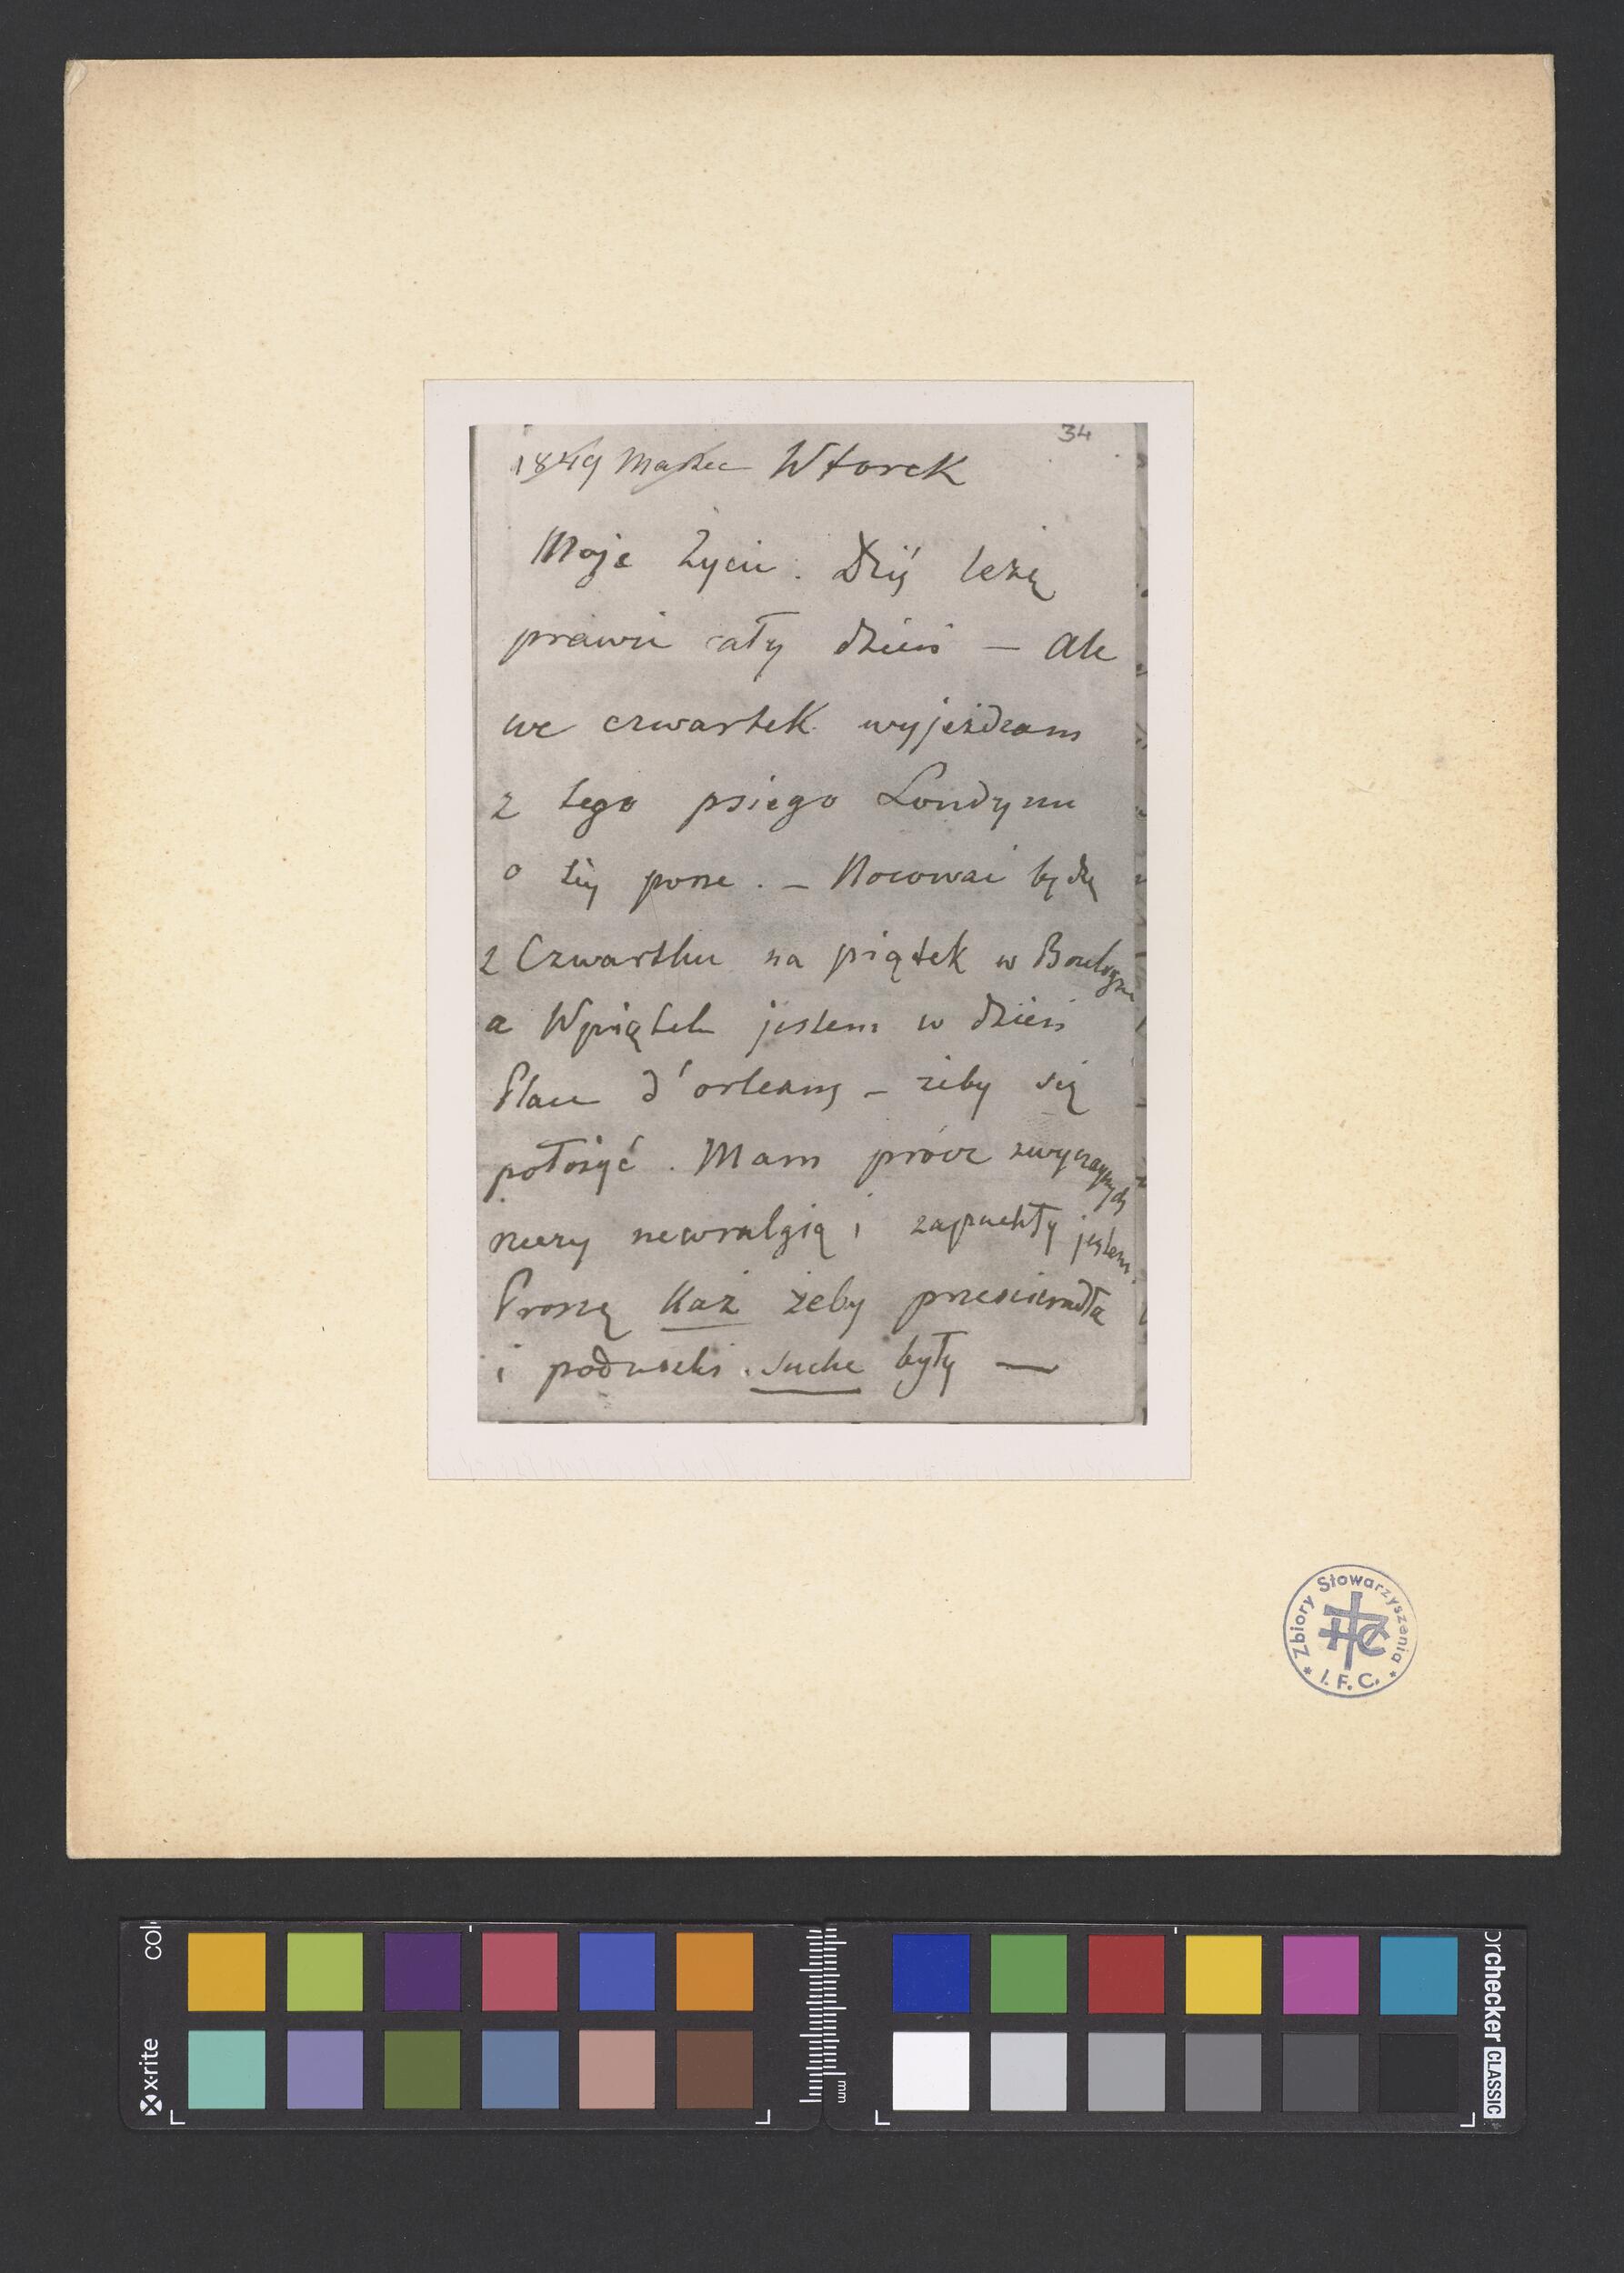 34
1849 Marzec Wtorek
Moje Życie. Dziś leżę
prawie cały dzień – ale
we czwartek wyjeżdżam
z tego psiego Londynu
o tej porze. – Nocować będę
z Czwartku na piątek w Boulogne
a Wpiątek jestem w dzień
Place d'orleans – żeby się
położyć. Mam prócz zwyczajnych
rzeczy newralgią i zapuchły jestem.
Proszę Każ żeby prześcieradła
i poduszki suche były —
Zbiory Stowarzyszenia
* I. F. C. *
x-rite
colorchecker CLASSIC
mm